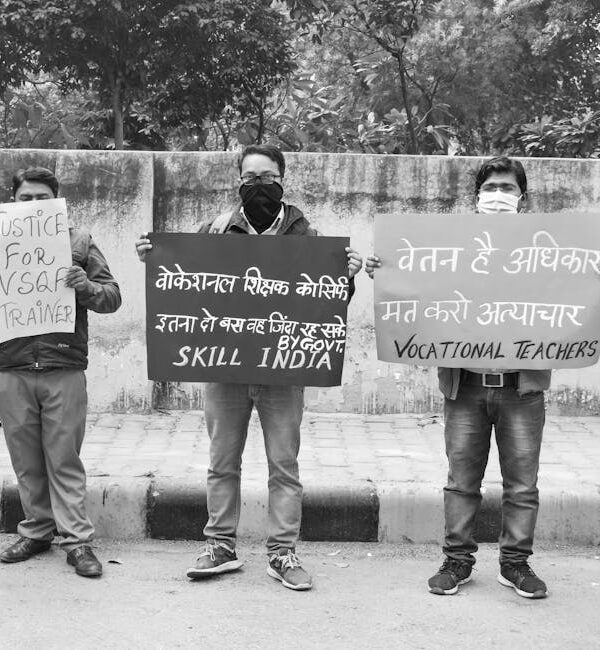 JUSTICE
FOR
NSQF
TRAINER
वोकेशनल शिक्षक को सिर्फ
इतना दो बस वह जिंदा रह सके
BY GOVT.
SKILL INDIA
वेतन है अधिकार
मत करो अत्याचार
VOCATIONAL TEACHERS